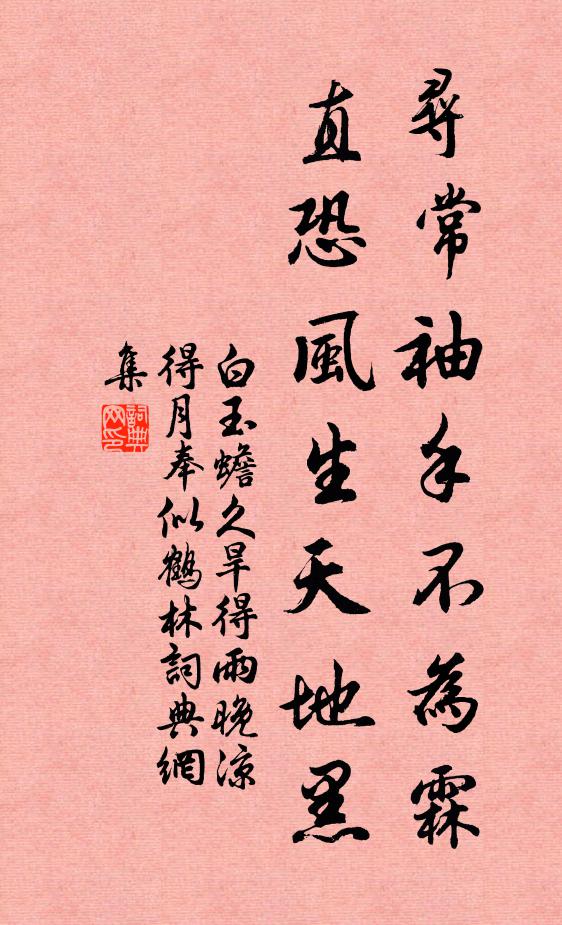 尋常袖手不為霖
直恐風生天地黑
白玉蟾久旱得雨晚涼
得月奉似鶴林詞典網
集
詞典網印